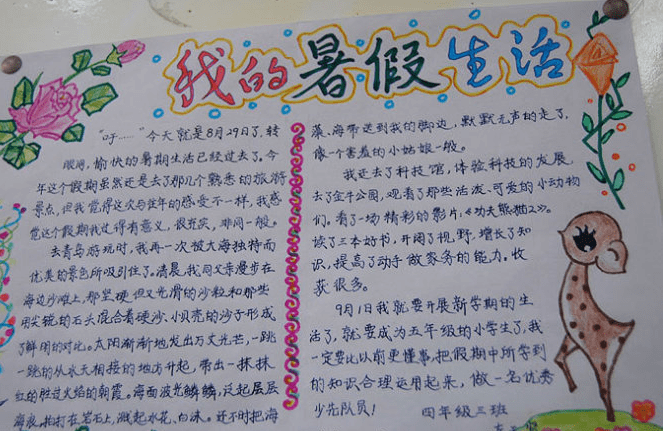 我的暑假生活
“吁……”今天就是8月29日了，转
眼间，愉快的暑期生活已经过去了。今
年这个假期虽然还是去了那几个熟悉的旅游
景点，但我觉得这次与往年的感受不一样，我感
觉这个假期我过得有意义、很充实、非同一般。
去青岛游玩时，我再一次被大海独特而
优美的景色所吸引住了。清晨，我同父亲漫步在
海边沙滩上，那坚硬但又光滑的沙粒和那些
用尖锐的石头混合着硬沙、小贝壳的沙子形成
了鲜明的对比。太阳渐渐地发出万丈光芒，一跳
一跳的从水天相接的地方升起，带出一抹抹
红的胜过火焰的朝霞。海面波光鳞鳞，泛起层层
海浪，拍打在岩石上，溅起水花、白沫。还不时把海
藻、海带送到我的脚边，默默无声的走了，
像一个害羞的小姑娘一般。
我还去了科技馆，体验科技的发展，
去了金牛公园，观看了那些活泼、可爱的小动物
们，看了一场精彩的影片，《功夫熊猫2》。
读了三本好书，开阔了视野，增长了知
识，提高了动手做家务的能力，收
获很多。
9月1日我就要开展新学期的生
活了，就要成为五年级的小学生了，我
一定要比以前更懂事，把假期中所学到
的知识合理运用起来，做一名优秀
少先队员！
四年级三班